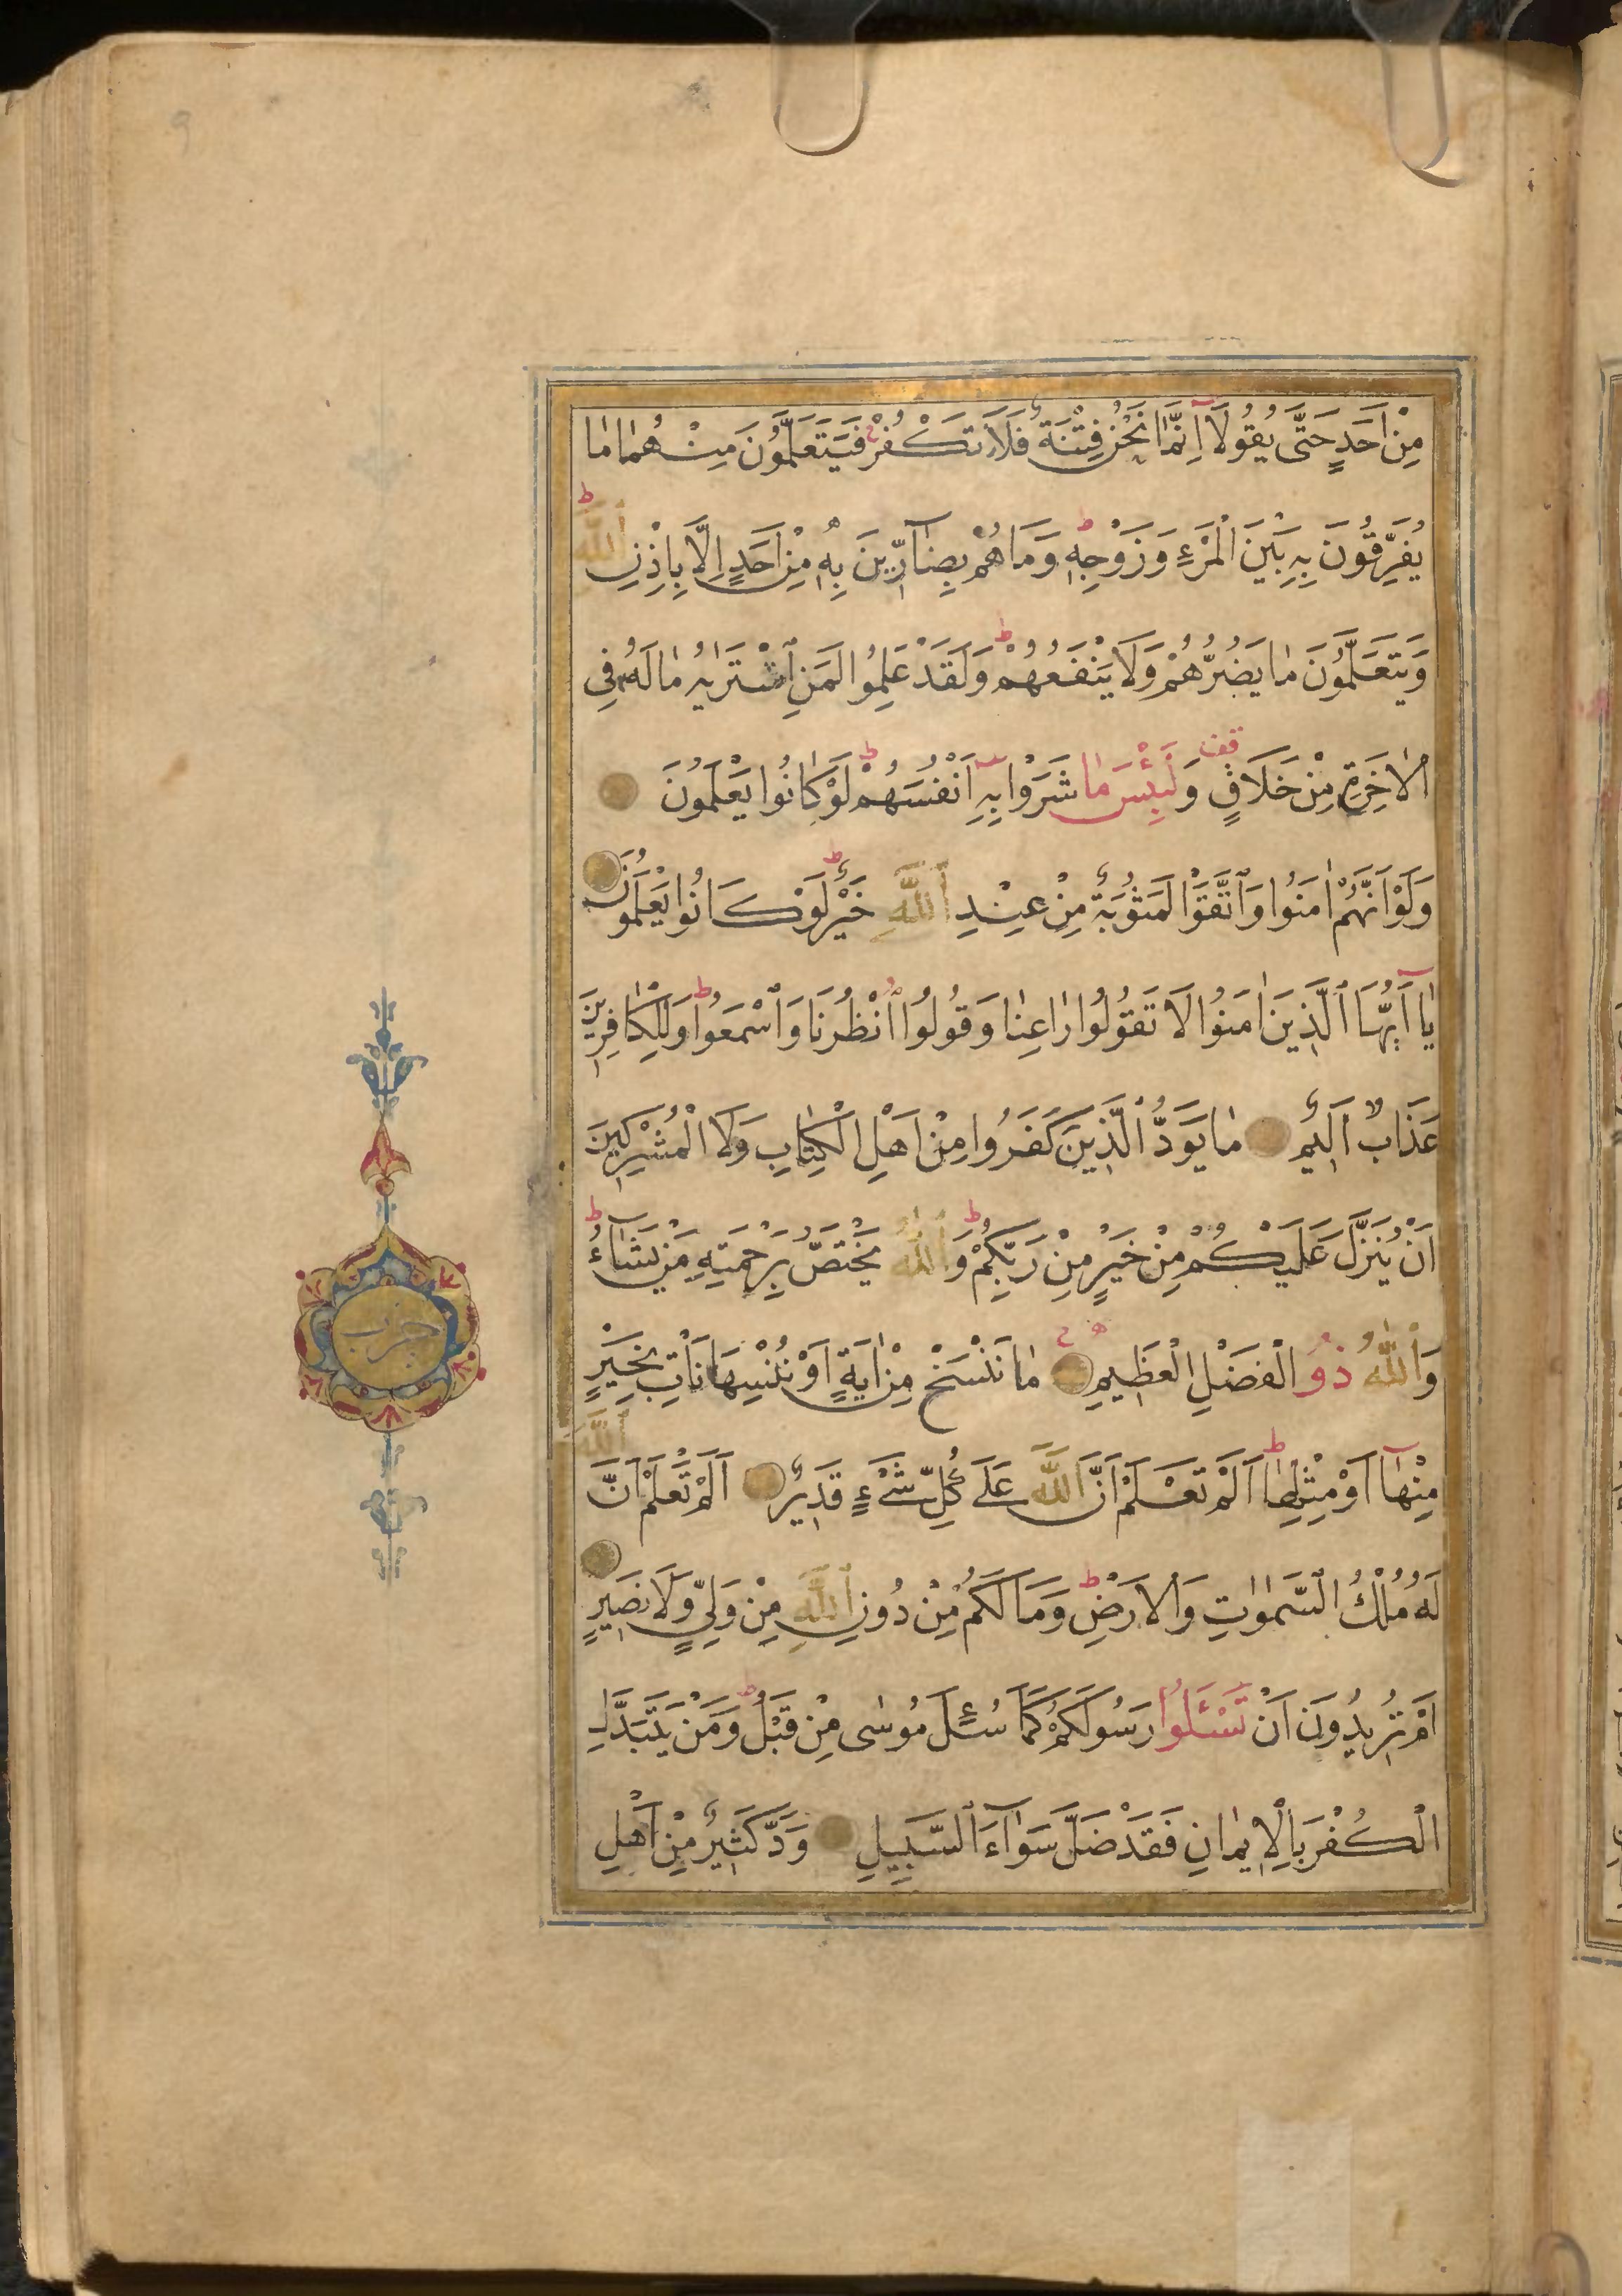 مِنْ اَحَدٍ حَتّٰى يَقُولَآ اِنَّمَا نَحْنُ فِتْنَةٌ فَلَا تَكْفُرْ فَيَتَعَلَّمُونَ مِنْهُمَا مَا
يُفَرِّقُونَ بِهِ بَيْنَ الْمَرْءِ وَزَوْجِهِ ط وَمَا هُمْ بِضَآرّ۪ينَ بِهِ مِنْ اَحَدٍ اِلَّا بِاِذْنِ اللّٰهِ ط
وَيَتَعَلَّمُونَ مَا يَضُرُّهُمْ وَلَا يَنْفَعُهُمْ ط وَلَقَدْ عَلِمُوا لَمَنِ اشْتَرٰيهُ مَا لَهُ فِي
الْاٰخِرَةِ مِنْ خَلَاقٍ قف وَلَبِئْسَ مَا شَرَوْا بِهِٓ اَنْفُسَهُمْ ط لَوْ كَانُوا يَعْلَمُونَ
وَلَوْ اَنَّهُمْ اٰمَنُوا وَاتَّقَوْا لَمَثُوبَةٌ مِنْ عِنْدِ اللّٰهِ خَيْرٌ ط لَوْ كَانُوا يَعْلَمُونَ
يَآ اَيُّهَا الَّذِينَ اٰمَنُوا لَا تَقُولُوا رَاعِنَا وَقُولُوا انْظُرْنَا وَاسْمَعُوا ط وَلِلْكَافِرِينَ
عَذَابٌ اَلِيمٌ مَا يَوَدُّ الَّذِينَ كَفَرُوا مِنْ اَهْلِ الْكِتَابِ وَلَا الْمُشْرِكِينَ
اَنْ يُنَزَّلَ عَلَيْكُمْ مِنْ خَيْرٍ مِنْ رَبِّكُمْ ط وَاللّٰهُ يَخْتَصُّ بِرَحْمَتِهِ مَنْ يَشَآءُ ط
وَاللّٰهُ ذُو الْفَضْلِ الْعَظِيمِ مَا نَنْسَخْ مِنْ اٰيَةٍ اَوْ نُنْسِهَا نَأْتِ بِخَيْرٍ
مِنْهَآ اَوْ مِثْلِهَا ط اَلَمْ تَعْلَمْ اَنَّ اللّٰهَ عَلٰى كُلِّ شَيْءٍ قَدِيرٌ اَلَمْ تَعْلَمْ اَنَّ اللّٰهَ
لَهُ مُلْكُ السَّمٰوَاتِ وَالْاَرْضِ ط وَمَا لَكُمْ مِنْ دُونِ اللّٰهِ مِنْ وَلِيٍّ وَلَا نَصِيرٍ
اَمْ تُرِيدُونَ اَنْ تَسْـَٔلُوا رَسُولَكُمْ كَمَا سُئِلَ مُوسٰى مِنْ قَبْلُ ط وَمَنْ يَتَبَدَّلِ
الْكُفْرَ بِالْاِيمَانِ فَقَدْ ضَلَّ سَوَآءَ السَّبِيلِ وَدَّ كَثِيرٌ مِنْ اَهْلِ
حزب